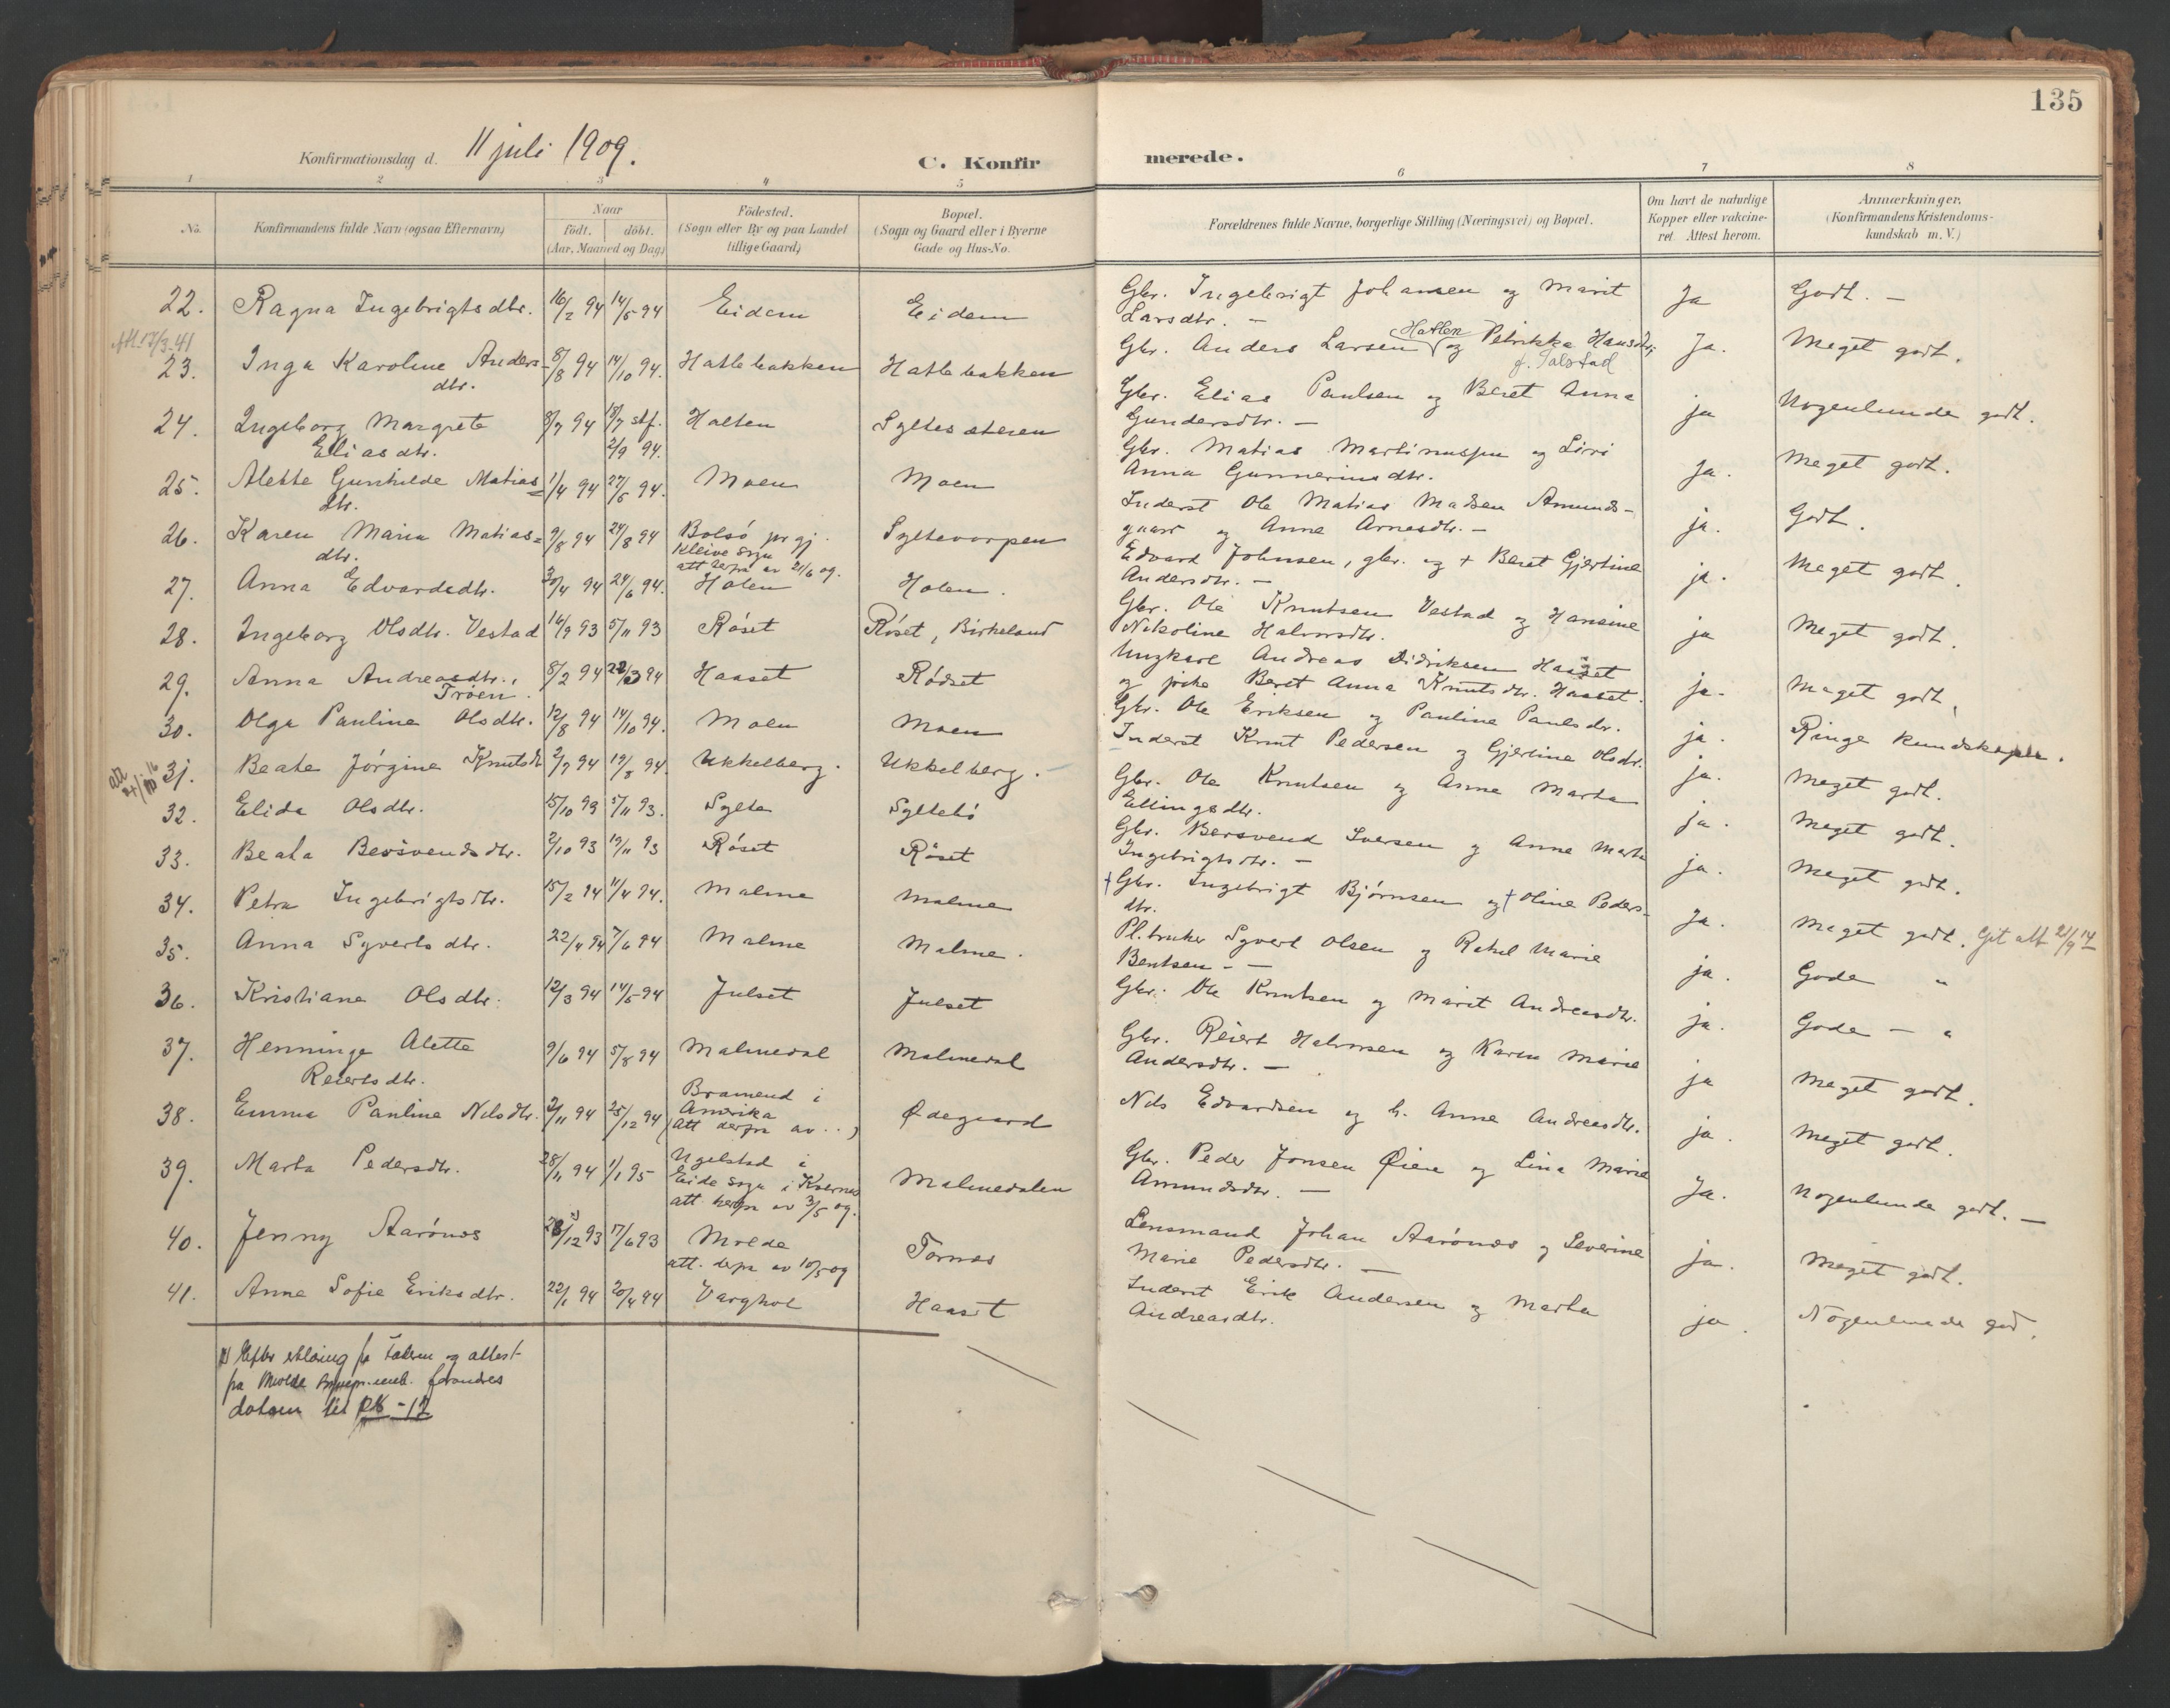 135
Konfirmationsdag d. 11 juli 1909.
C. Konfirmerede.
1 2 3 4 5 6 7 8
No.
Konfirmandens fulde Navn (ogsaa Efternavn)
Naar
födt. döbt.
(Aar, Maaned og Dag)
Födested.
(Sogn eller By og paa Landet
tillige Gaard)
Bopæl.
(Sogn og Gaard eller i Byerne
Gade og Hus-No.
Forældrenes fulde Navne, borgerlige Stilling (Næringsvei) og Bopæl.
Om havt de naturlige
Kopper eller vakcine-
ret. Attest herom.
Anmærkninger.
(Konfirmandens Kristendoms-
kundskab m. V.)
22. Ragna Ingebrigtsdtr. 16/2 94 14/5 94 Eidem Eidem Gbr. Ingebrigt Johansen og Marit Ja Godt. —
Larsdtr. —
Att. 17/3-41
23. Inga Karoline Anders- 8/8 94 14/10 94. Hatlebakken Hatlebakken Gbr. Anders Larsen Hatlen og Petrikka Hansdtr. Ja. Meget godt.
dtr. f. Talstad
24. Ingeborg Margrete 8/7 94 18/7 stf. Holten Syltesæteren Gbr. Elias Paulsen og Beret Anna ja Nogenlunde godt.
Eliasdtr. 2/9 94. Gundersdtr. —
25. Alette Gunhilde Matias= 1/4 94 27/5 94. Moen Moen Gbr. Matias Martinussen og Livi Ja. Meget godt.
dtr. Anna Gunneriusdtr.
26. Karen Maria Matias= 9/8 94 24/8 94 Bolsö pr gj. Syltevorpen Inderst Ole Matias Madsen Amunds- ja. Godt.
dtr. Kleive sogn gaard og Anne Arnesdtr. —
att derfra av 21/6 09.
27. Anna Edvardsdtr. 30/4 94 24/6 94. Holen Holen. Edvard Johnsen, gbr. og + Beret Gjertine ja. Meget godt.
Andersdtr. —
28. Ingeborg Olsdtr. Vestad 16/9 93 5/11 93 Röset Röset, Birkeland Gbr. Ole Knutsen Vestad og Hansine ja Meget godt.
Nikoline Halvorsdtr.
29. Anna Andreasdtr., 8/2 94 22/3 94 Haaset Rödset Ungkarl Andreas Didriksen Haaset ja. Meget godt.
Tröen. og pike Beret Anna Knutsdtr. Haaset.
30. Olga Pauline Olsdtr. 12/8 94 14/10 94. Moen Moen Gbr. Ole Eriksen og Pauline Paulsdtr. ja. Ringe kundskaper.
31. Beate Jörgine Knutsdtr 2/7 94 19/8 94. Ukkelberg. Ukkelberg. Inderst Knut Pedersen og Gjertine Olsdtr. ja. Meget godt.
att
32. Elida Olsdtr. 15/10 93 5/11 93. Sylte Syltebö Gbr. Ole Knutsen og Anne Marta ja. Meget godt.
Ellingsdtr.
33. Beata Bersvendsdtr. 2/10 93 19/11 93 Röset Röset Gbr. Bersvend Iversen og Anne Marta ja. Meget godt.
Ingebrigtsdtr. —
34. Petra Ingebrigtsdtr. 15/2 94 11/4 94. Malme Malme †Gbr. Ingebrigt Bjørnsen og † Oline Peders- Ja. Meget godt. Git att 21/9 14
dtr.
35. Anna Syvertsdtr. 22/4 94 7/6 94 Malme Malme. Pl.bruker Syvert Olsen og Rakel Marie ja. Gode "
Bentsen. —
36. Kristiane Olsdtr. 12/3 94 14/5 94 Julset Julset Gbr. Ole Knutsen og Marit Andreasdtr. ja. Gode — "
37. Henninge Alette 9/6 94 5/8 94 Malmedal Malmedal Gbr. Reiert Halvorsen og Karen Marie ja Meget godt.
Reiertsdtr. Andersdtr. —
38. Emma Pauline Nilsdtr. 2/11 94 25/12 94 Bramend i Ødegaard Nils Edvardsen og h. Anne Andreasdtr. ja. Meget godt.
Amerika
(att derfra av . . )
39. Marta Pedersdtr. 28/11 94 1/1 95 Ugelstad i Malmedalen Gbr. Peder Jonsen Øien og Lina Marie Ja. Nogenlunde godt. —
Eide sogn i Kvernes Amundsdtr. —
att. herfra av 3/5 09.
40. Jenny Aarönæs 28/12 93 17/6 93 Molde Tornæs Lensmand Johan Aarönæs og Severine ja. Meget godt.
att. derfra av 10/5 09 Marie Pedersdtr. —
41. Anne Sofie Eriksdtr. 22/1 94 20/4 94 Varghol Haaset Inderst Erik Andersen og Marta ja. Nogenlunde god.
Andreasdtr.
Efter erklæring fra faderen og attest
fra Molde forandres
datoen til